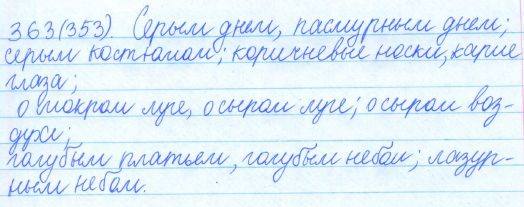 363(353). Серым днем, пасмурным днем;
серым костюмом; коричневые носки, карие
глаза;
о мокром луге, о сыром луге; о сыром воз-
духе;
голубым платьем, голубым небом; лазур-
ным небом.